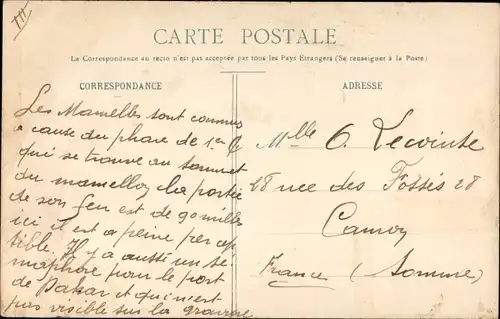 TH
CARTE POSTALE
La Correspondance au recto n'est pas acceptée par tous les Pays Etrangers (Se renseigner à la Poste)
CORRESPONDANCE
Les Mamelles sont connues
a cause du phare de 1er O
qui se trouve au sommet
du mamelon la portée
de son feu est de 90 milles
ici il est a peine percep
tible. Il y a aussi un sé
maphore pour le port
de Dakar et qui n'est
pas visible sur la gravure
ADRESSE
Mlle O. Lecointe
28 rue des Fossés 28
France (Somme)